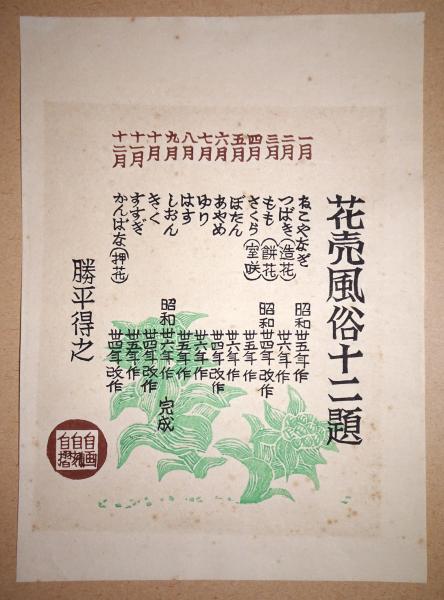 花売風俗十二題
一月 ねこやなぎ 昭和廿五年作
二月 つばき(造花) 廿六年作
三月 もも(餅花) 昭和廿四年改作
四月 さくら(室咲) 廿五年作
五月 ぼたん 廿六年作
六月 あやめ 廿四年改作
七月 ゆり 廿六年作
八月 はす 廿五年作
九月 しおん 昭和廿六年作 完成
十月 きく 廿四年改作
十一月 すすぎ 廿五年作
十二月 かんばな(押花) 廿四年改作
勝平得之
自画自刻自摺